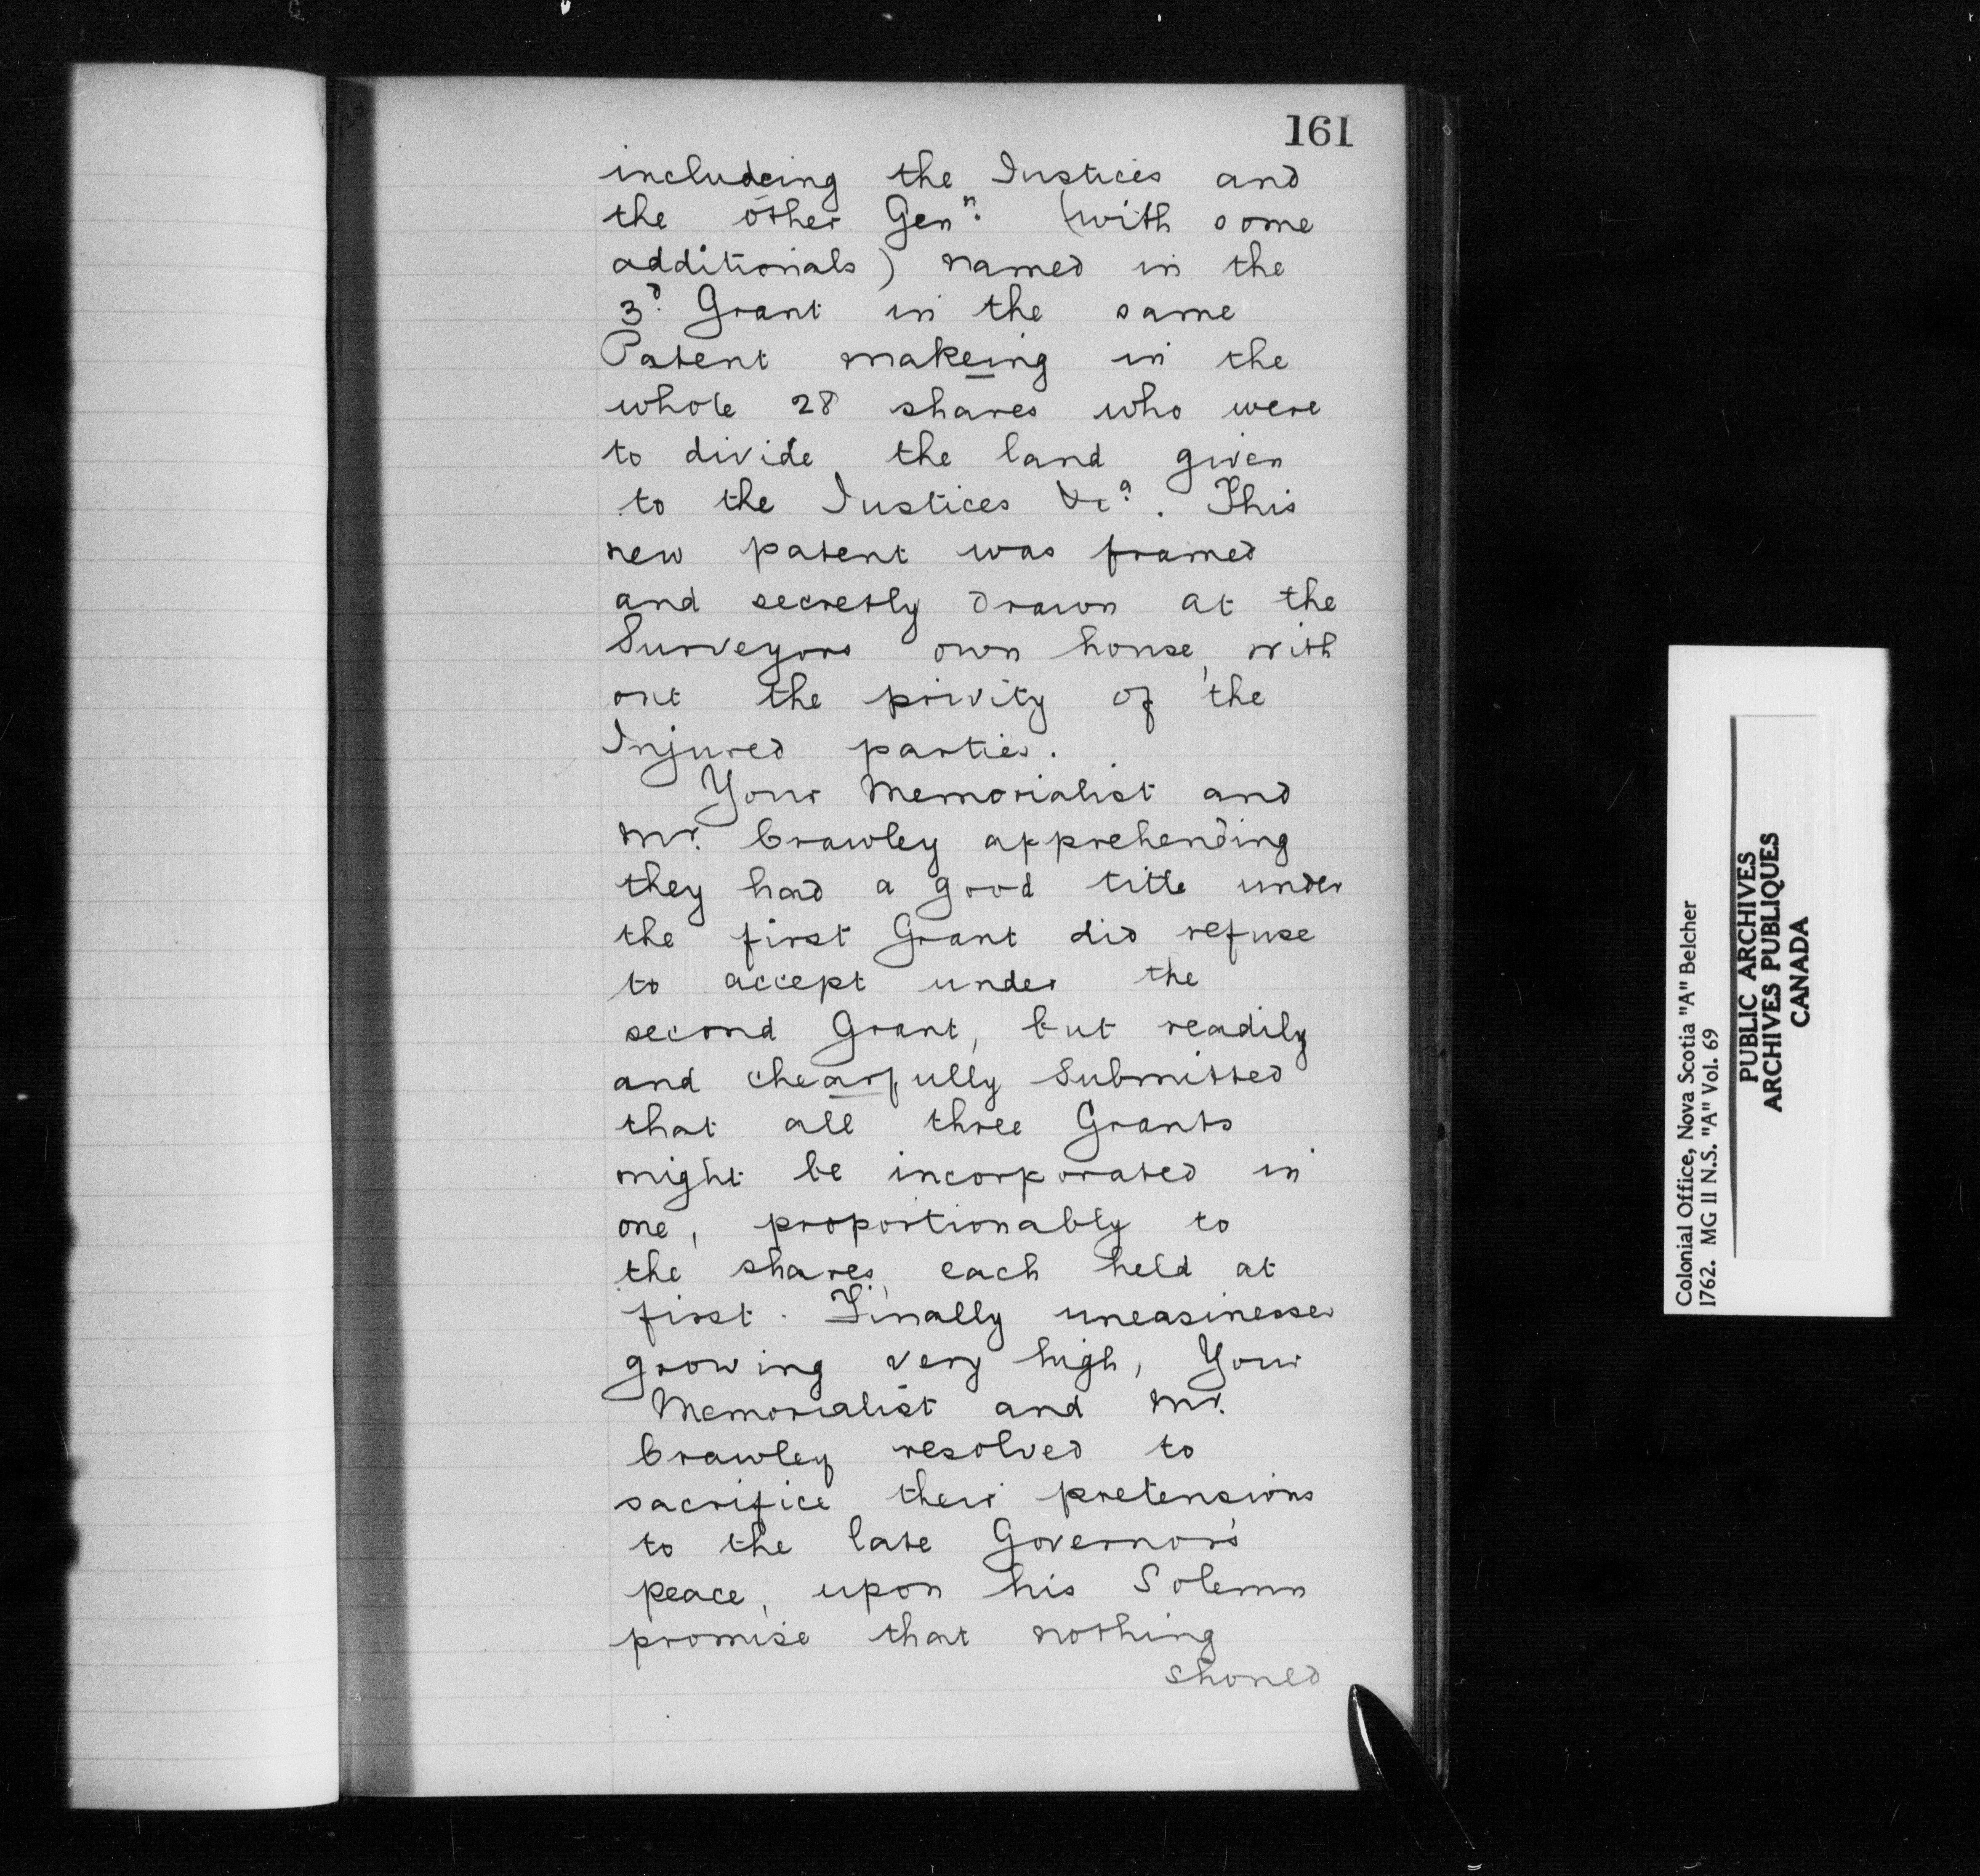 161
includeing the Justices and
the other Genn. (with some
additionals) named in the
3d. Grant in the same
Patent makeing in the
whole 28 shares who were
to divide the land given
to the Justices &ca. This
new patent was framed
and secretly drawn at the
Surveyors own house, with
out the privity of the
Injured parties.
Your Memorialist and
Mr. Crawley apprehending
they had a good title under
the first Grant did refuse
to accept under the
second Grant, but readily
and chearfully Submitted
that all three Grants
might be incorporated in
one, proportionably to
the shares, each held at
first. Finally uneasinesses
growing very high, Your
Memorialist and Mr.
Crawley resolved to
sacrifice their pretensions
to the late Governor's
peace, upon his Solemn
promise that nothing
shoued
Colonial Office, Nova Scotia "A" Belcher
1762. MG II N.S. "A" Vol. 69
PUBLIC ARCHIVES
ARCHIVES PUBLIQUES
CANADA